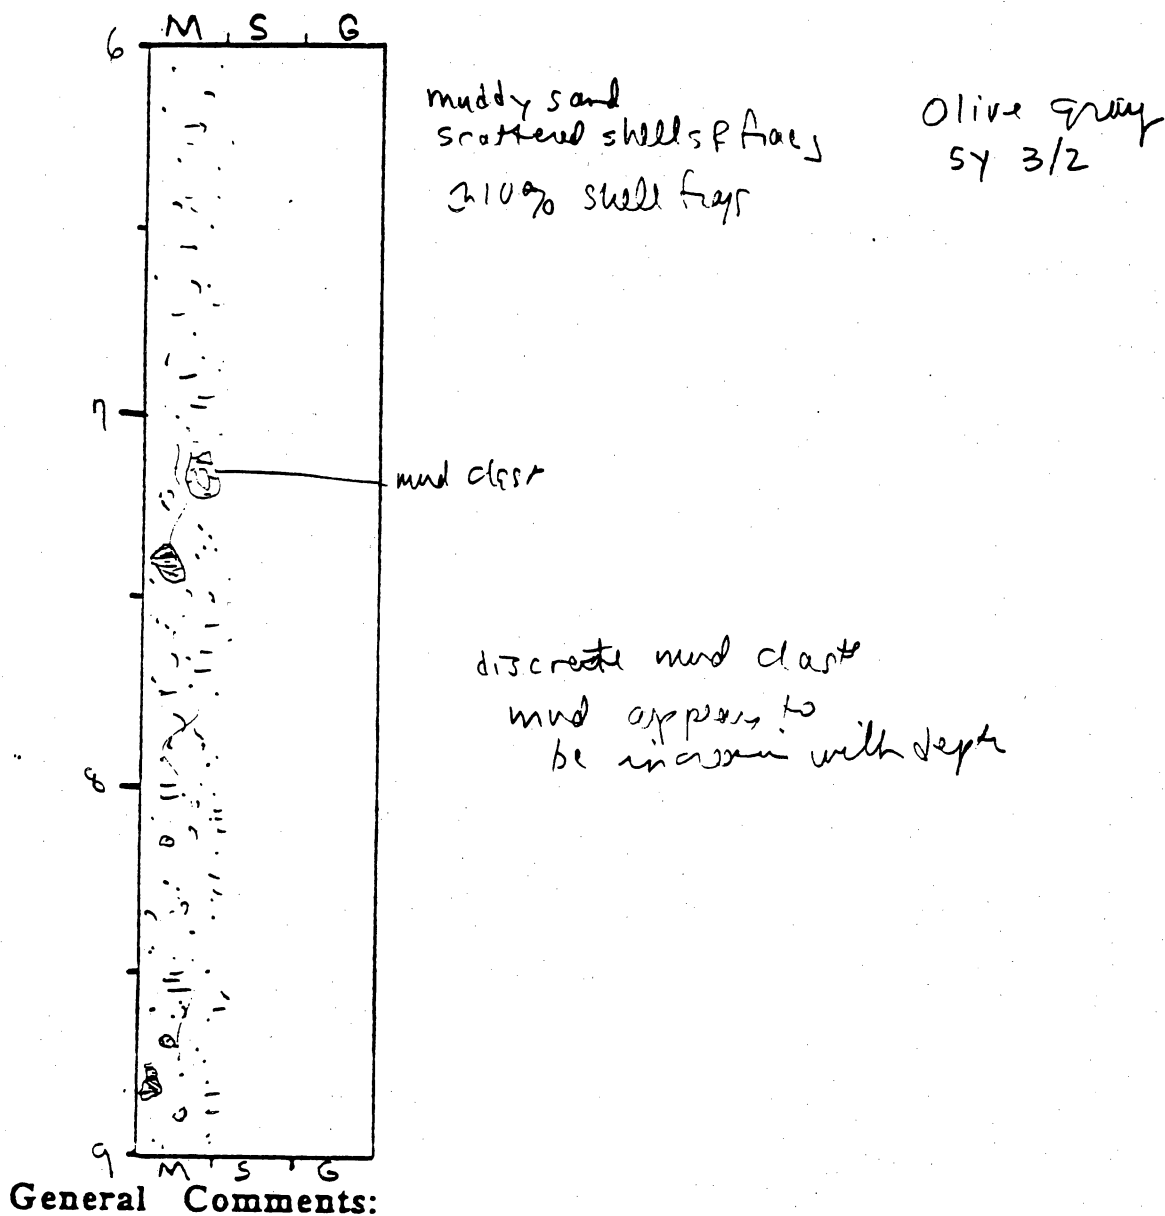 M S G
6
muddy sand
scattered shells & frags
~10% shell frags
Olive gray
5Y 3/2
7
mud clast
discrete mud clasts
mud appears to
be increasing with depth
8
9
M S G
General Comments: